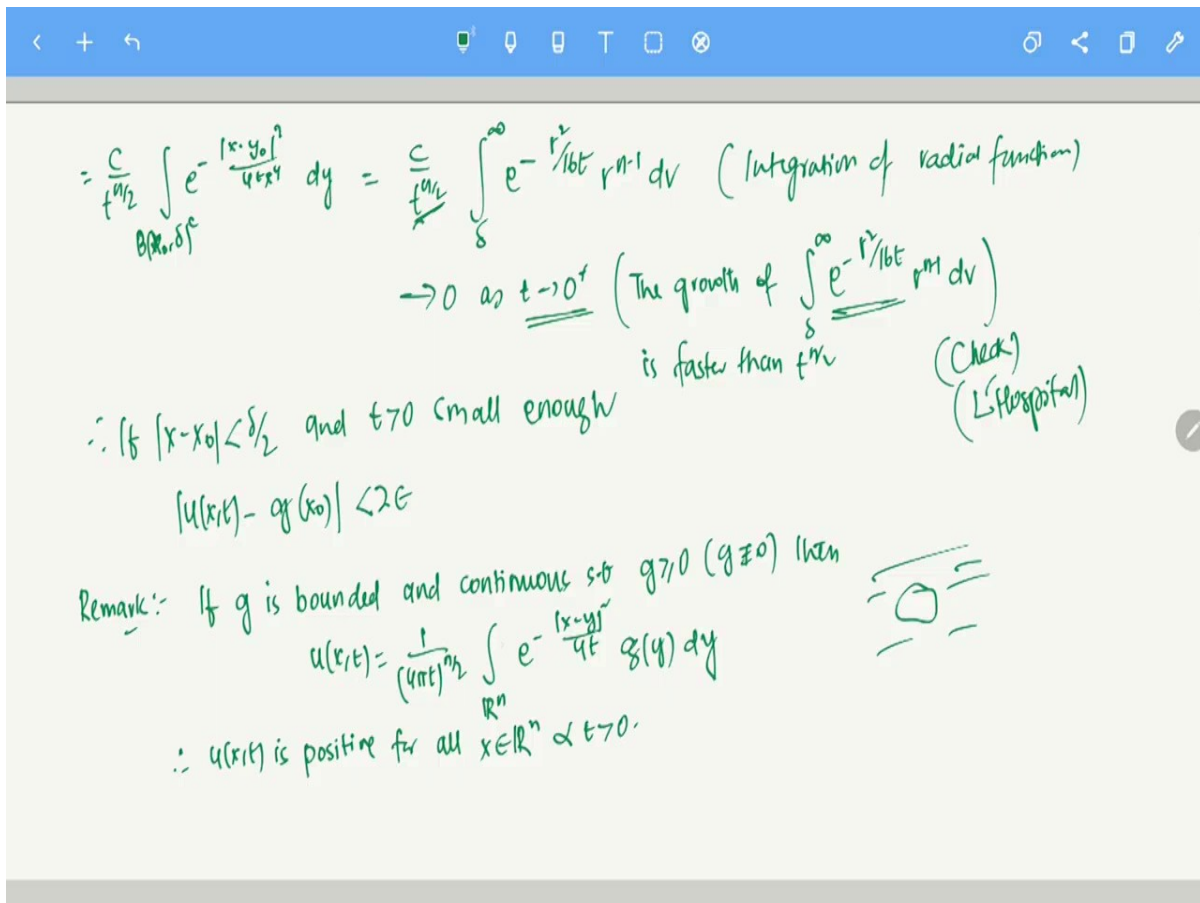 = C/t^{n/2} ∫_{B(x₀,δ)^c} e^{-|x-y₀|²/(4t×4)} dy = C/t^{n/2} ∫_δ^∞ e^{-r²/16t} r^{n-1} dr (Integration of radial function)
→ 0 as t→0⁺ (The growth of ∫_δ^∞ e^{-r²/16t} r^{n-1} dr)
is faster than t^{n/2} (Check)
(L'Hospital)
∴ If |x-x₀| < δ/2 and t>0 small enough
|u(x,t) - g(x₀)| < 2ϵ
Remark:- If g is bounded and continuous s.t g≥0 (g≢0) then
u(x,t) = 1/(4πt)^{n/2} ∫_{ℝⁿ} e^{-|x-y|²/4t} g(y) dy
∴ u(x,t) is positive for all x∈ℝⁿ & t>0.
T